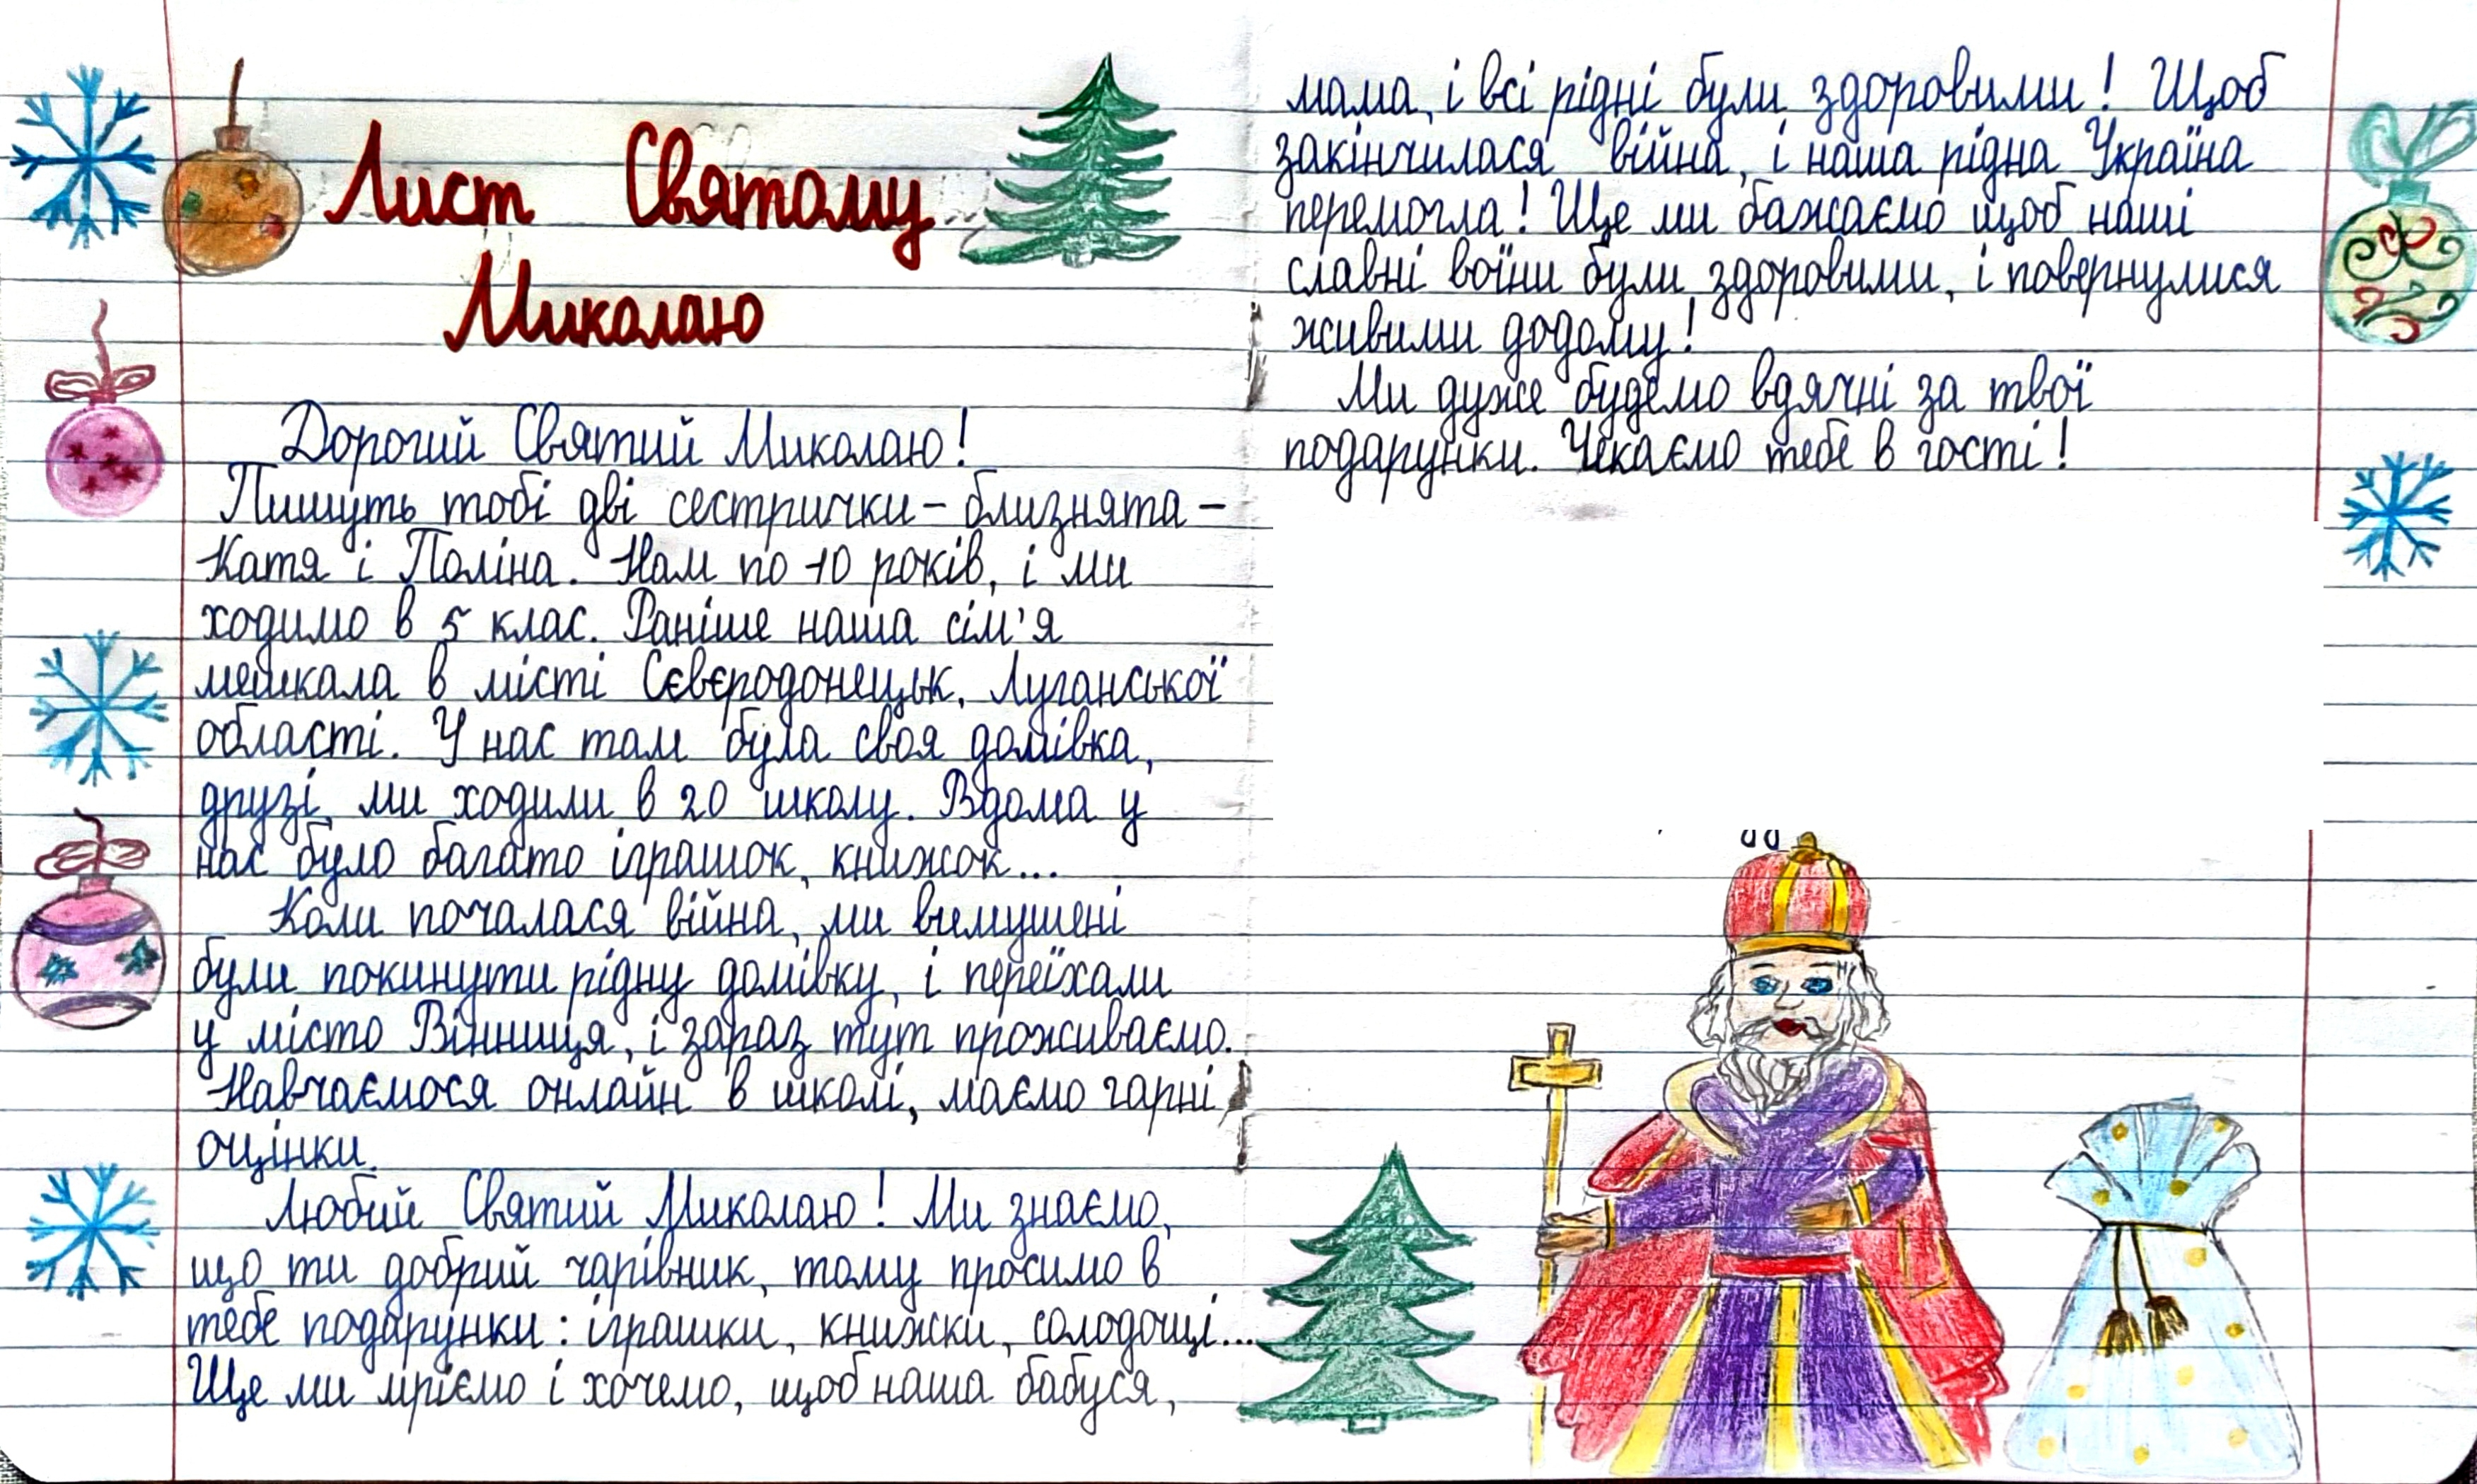 Лист Святому
Миколаю
Дорогий Святий Миколаю!
Пишуть тобі дві сестрички - близнята -
Катя і Поліна. Нам по 10 років, і ми
ходимо в 5 клас. Раніше наша сім'я
мешкала в місті Сєвєродонецьк, Луганської
області. У нас там була своя домівка,
друзі, ми ходили в 20 школу. Вдома у
нас було багато іграшок, книжок...
Коли почалася війна, ми вимушені
були покинути рідну домівку, і переїхали
у місто Вінниця, і зараз тут проживаємо.
Навчаємося онлайн в школі, маємо гарні
оцінки.
Любий Святий Миколаю! Ми знаємо,
що ти добрий чарівник, тому просимо в
тебе подарунки: іграшки, книжки, солодощі...
Ще ми мріємо і хочемо, щоб наша бабуся,
мама, і всі рідні були здоровими! Щоб
закінчилася війна, і наша рідна Україна
перемогла! Ще ми бажаємо щоб наші
славні воїни були здоровими, і повернулися
живими додому!
Ми дуже будемо вдячні за твої
подарунки. Чекаємо тебе в гості!